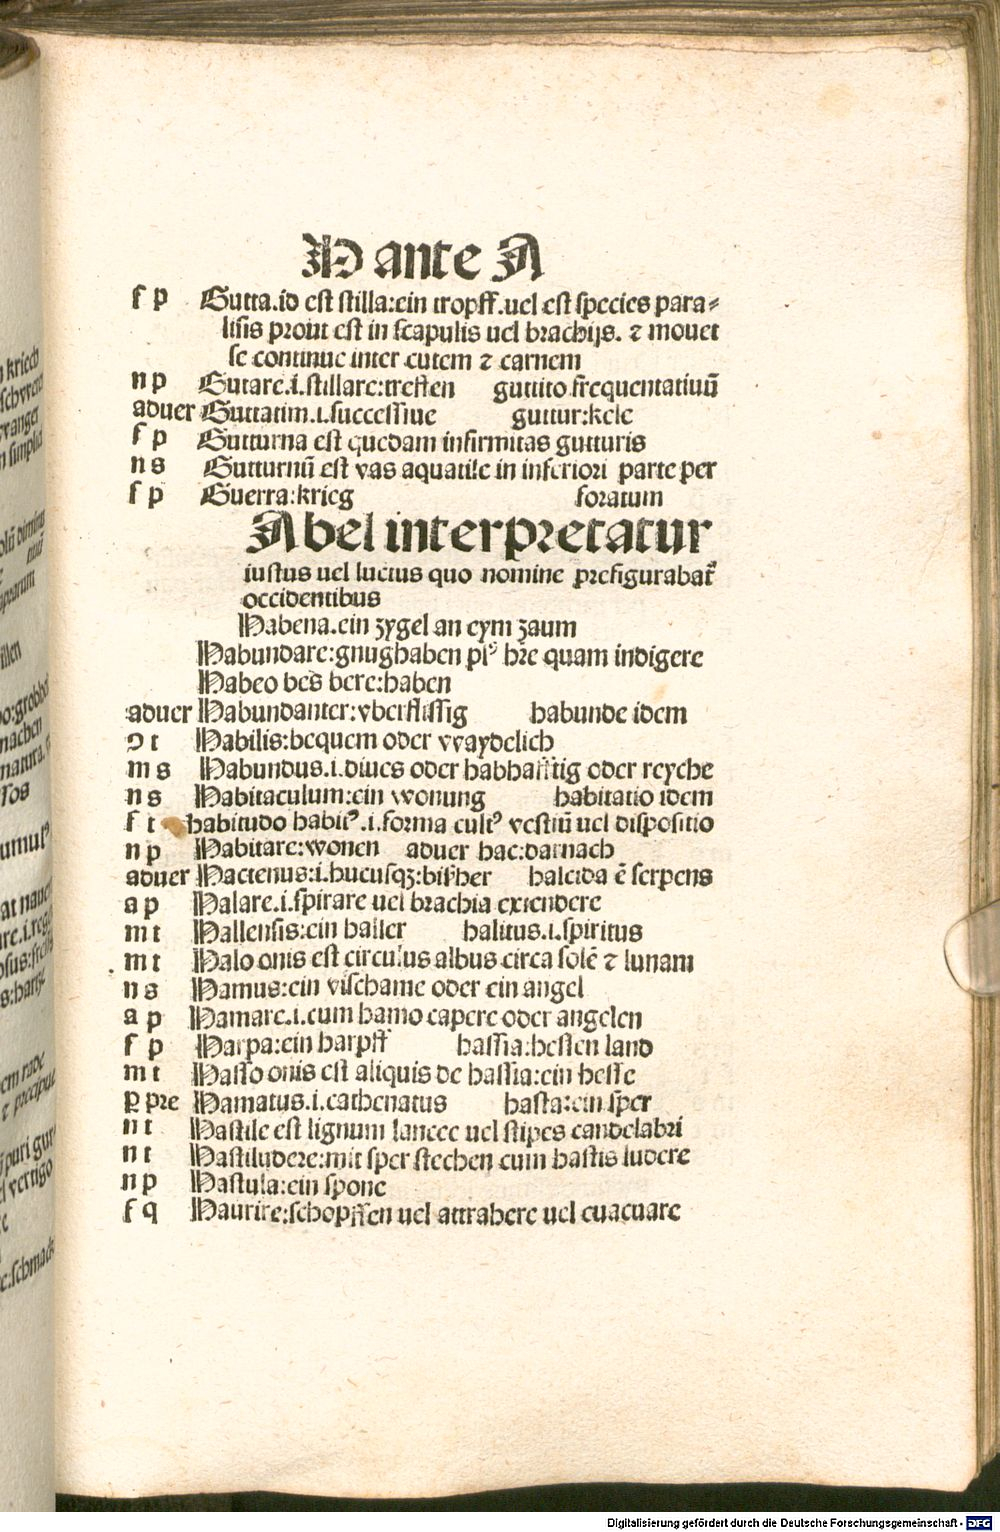 H ante A
f p Gutta.id est stilla:ein tropff.uel est species para⸗
lisis prout est in scapulis uel brachijs. ⁊ mouet
se continue inter cutem ⁊ carnem
n p Gutare.i.stillare:treffen guttito frequentatiuū
aduer Guttatim.i.successiue guttur:kele
f p Gutturna est quedam infirmitas gutturis
n s Gutturnū est vas aquatile in inferiori parte per
f p Guerra:krieg foratum
Abel interpretatur
iustus uel luctus quo nomine prefigurabat᷑
occidentibus
Habena.ein zygel an eym zaum
Habundare:gnughaben plꝰ hr̄e quam indigere
Habeo bes bere:haben
aduer Habundanter:vberflissig habunde idem
ꝯ t Habilis:bequem oder vvaydelich
m s Habundus.i.diues oder habhafftig oder reyche
n s Habitaculum:ein wonung habitatio idem
f t habitudo habitꝰ.i.forma cultꝰ vestiū uel dispositio
n p Habitare:wonen aduer hac:darnach
aduer Hactenus:i.hucusqꝫ:bißher halcida ē serpens
a p Halare.i.spirare uel brachia extendere
m t Hallensis:ein haller halitus.i.spiritus
m t Halo onis est circulus albus circa solē ⁊ lunam
n s Hamus:ein vischame oder ein angel
a p Hamare.i.cum hamo capere oder angelen
f p Harpa:ein harpff hassia:hessen land
m t Hasso onis est aliquis de hassia:ein hesse
ꝑ pre Hamatus.i.cathenatus hasta:ein sper
n t Hastile est lignum lancee uel stipes candelabri
n t Hastiludere:mit sper stechen cum hastis ludere
n p Hastula:ein spone
f q Haurire:schopffen uel attrahere uel euacuare
Digitalisierung gefördert durch die Deutsche Forschungsgemeinschaft - DFG